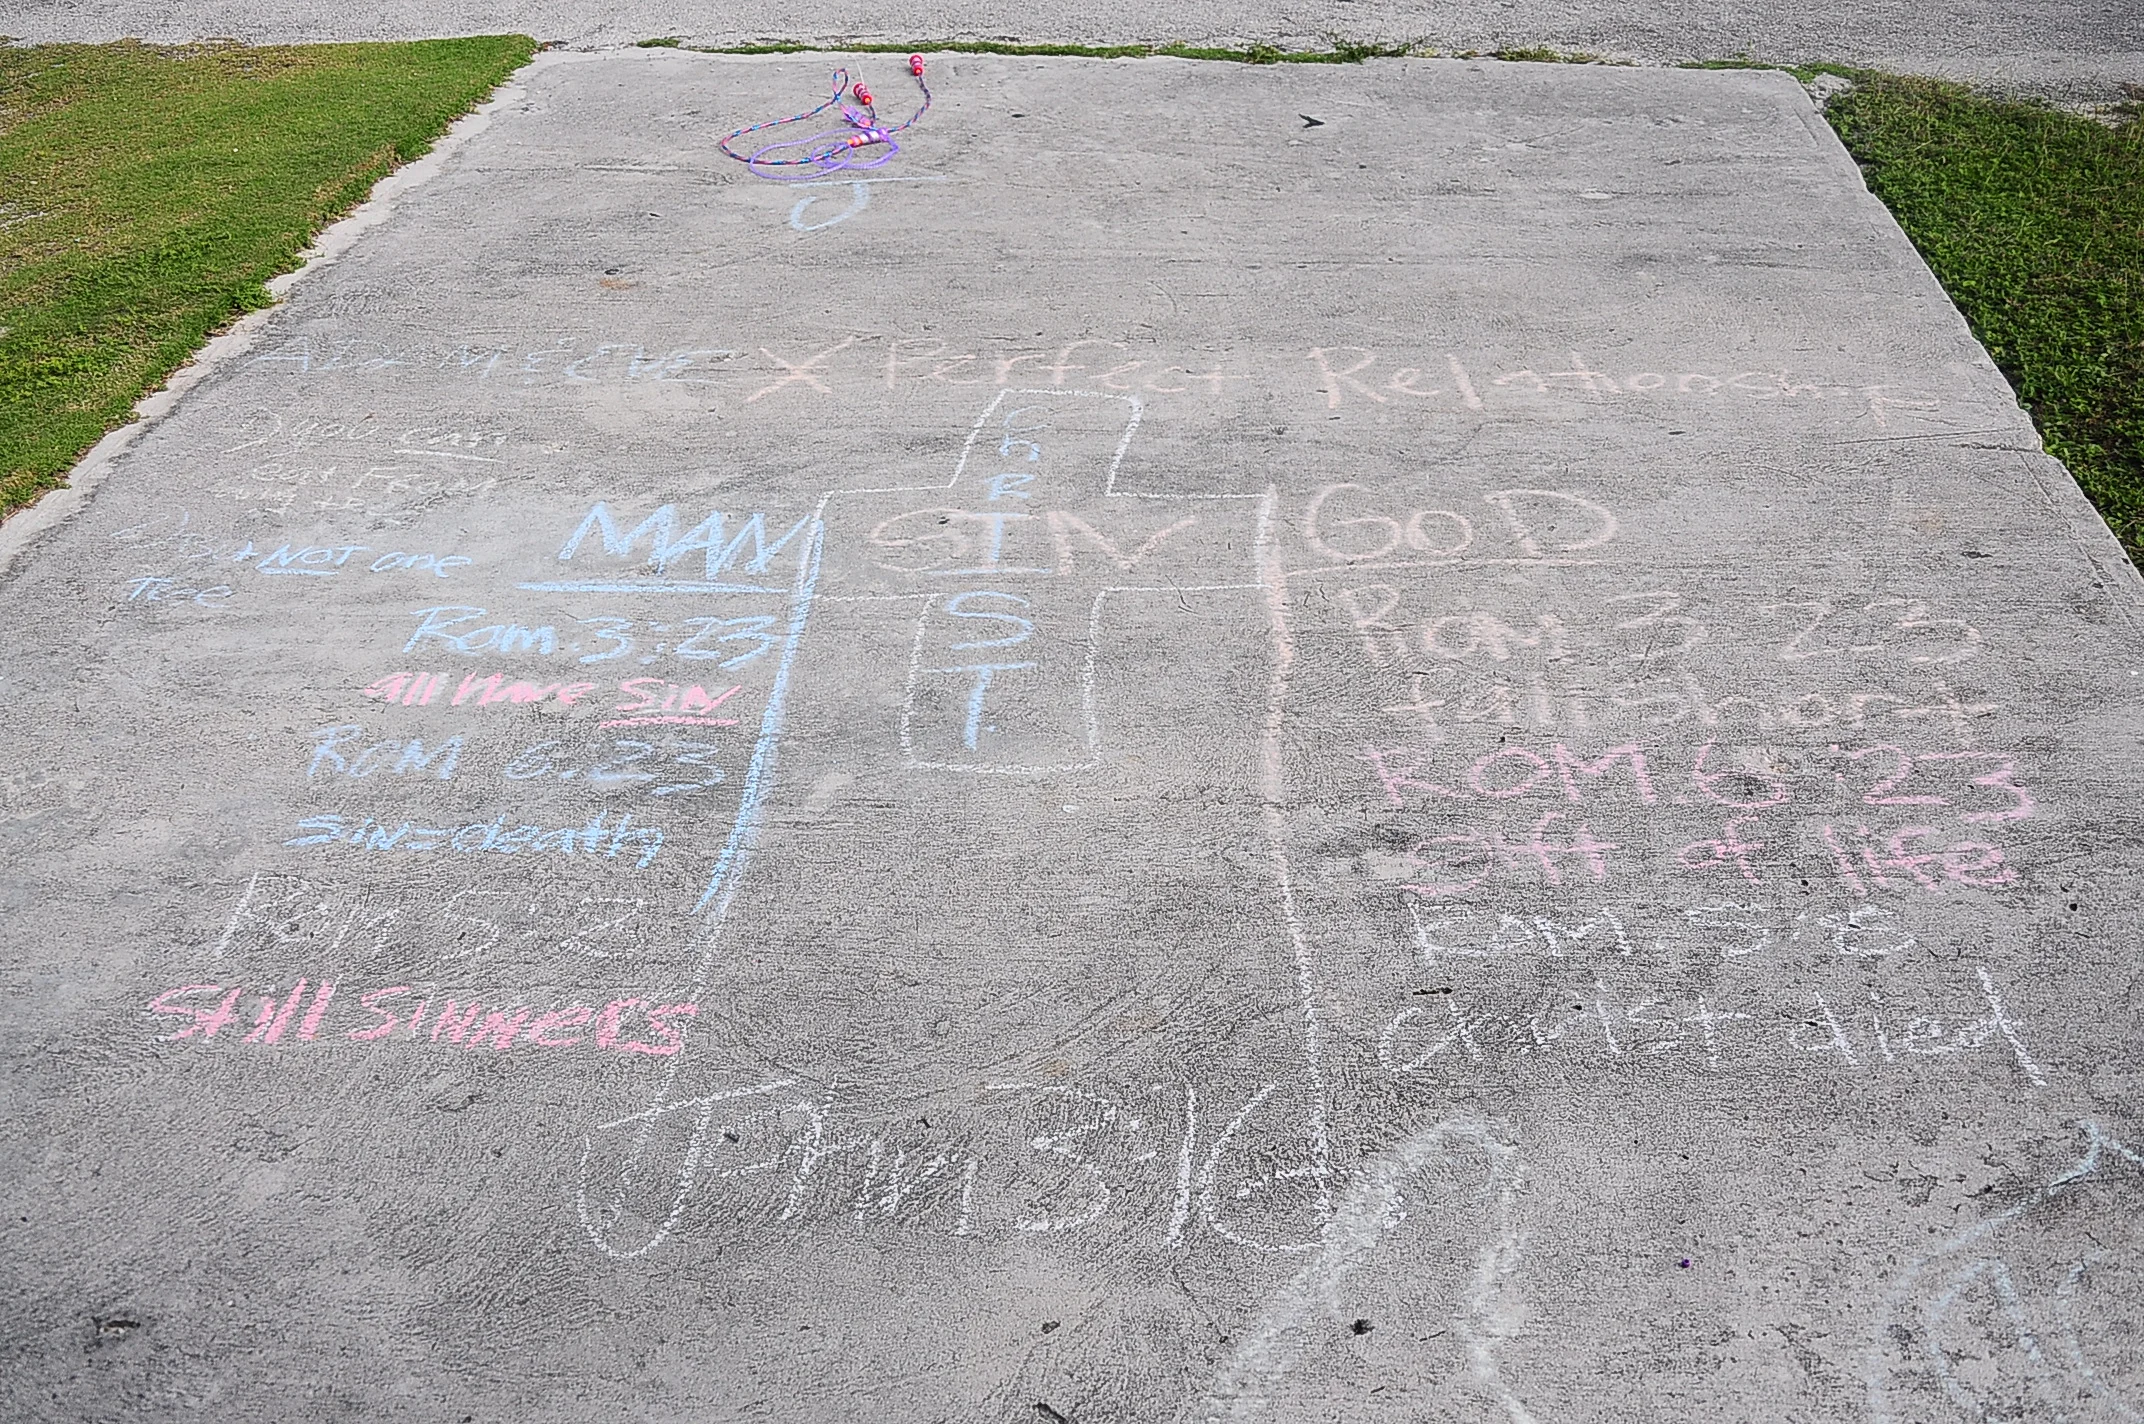 J
& EVE X Perfect Relationship
you can
eat FROM
MAN
CHRIST
SIN
GOD
but NOT one
Tree
Rom. 3:23
all have SIN
ROM 6:23
SIN=death
Rom 5:8
Still SINNERS
ROM 3 23
fall short
ROM 6 23
Gift of life
ROM. 5:8
Christ died
John 3:16